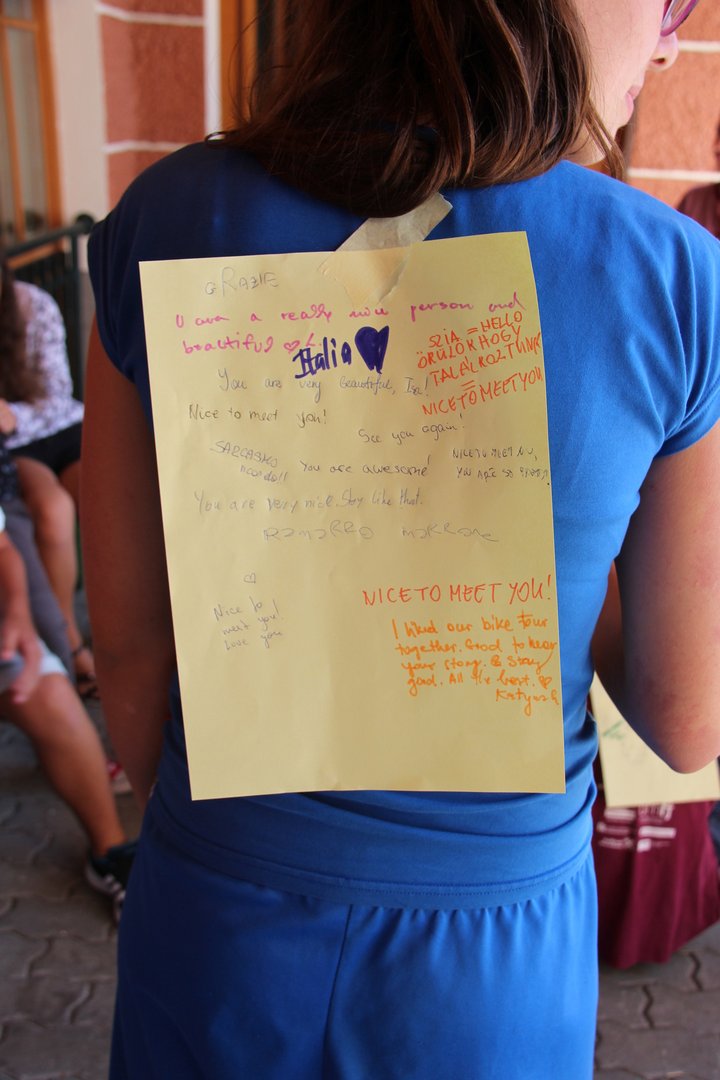 GRAZIE
U are a really nice person and
beautiful
Italia
SZIA = HELLO
ÖRÜLÖK HOGY
TALÁLKOZTUNK
=
NICE TO MEET YOU
You are very beautiful, Isa!
Nice to meet you!
See you again!
You are awesome!
NICE TO MEET YOU,
YOU ARE SO
You are very nice. Stay like that.
NICE TO MEET YOU!
Nice to
meet you!
Love you
I liked our bike tour
together. Good to hear
your story. & Stay
good. All the best.